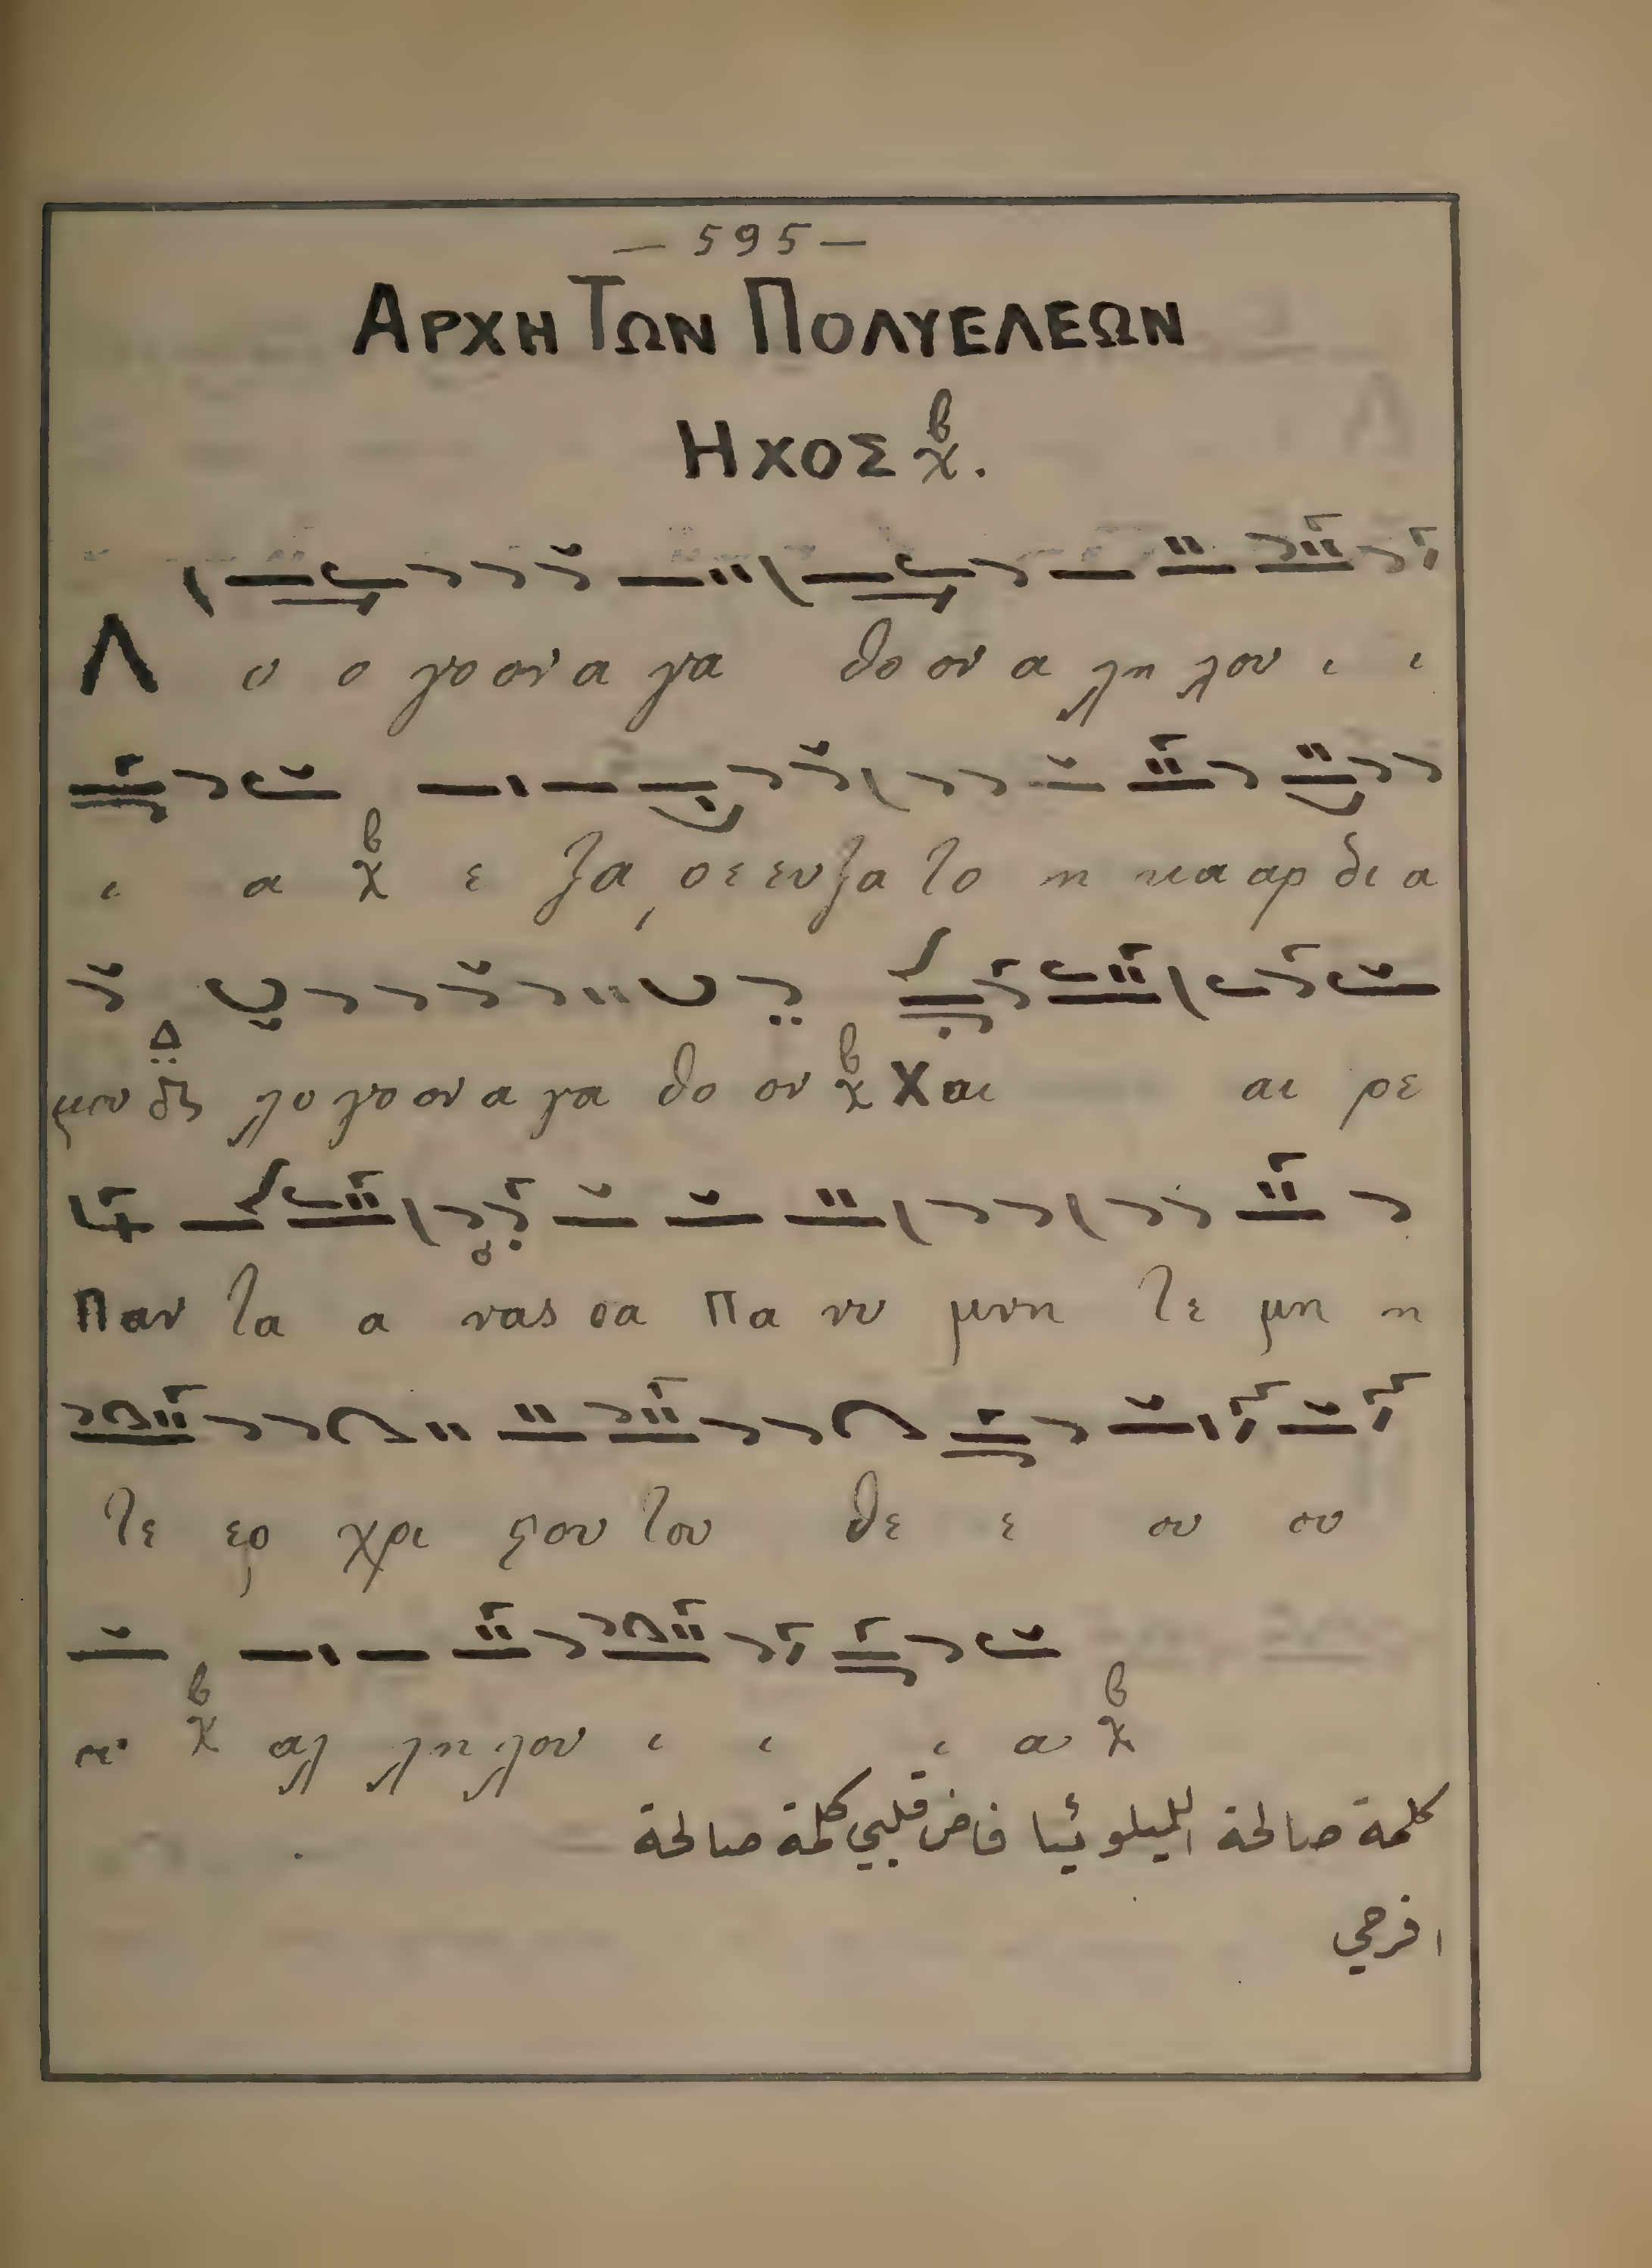 — 595 —
ΑΡΧΗ ΤΩΝ ΠΟΛΥΕΛΕΩΝ
ΗΧΟΣ β χ.
Λ ο ο γο ον α γα θο ον α λη λου ι ι
ι α β χ ε ξα ρε ευ ξα το η κα αρ δι α
μου Δ λο γο ον α γα θο ον β χ Χαι αι ρε
Παν τα α νας σα Πα νυ μνη τε μη η
τε ερ χρι ϛου του θε ε ου ου
β χ αλ λη λου ι ι ι α β χ
كلمة صالحة الليلوئيا فاض قلبي كلمة صالحة
افرحي